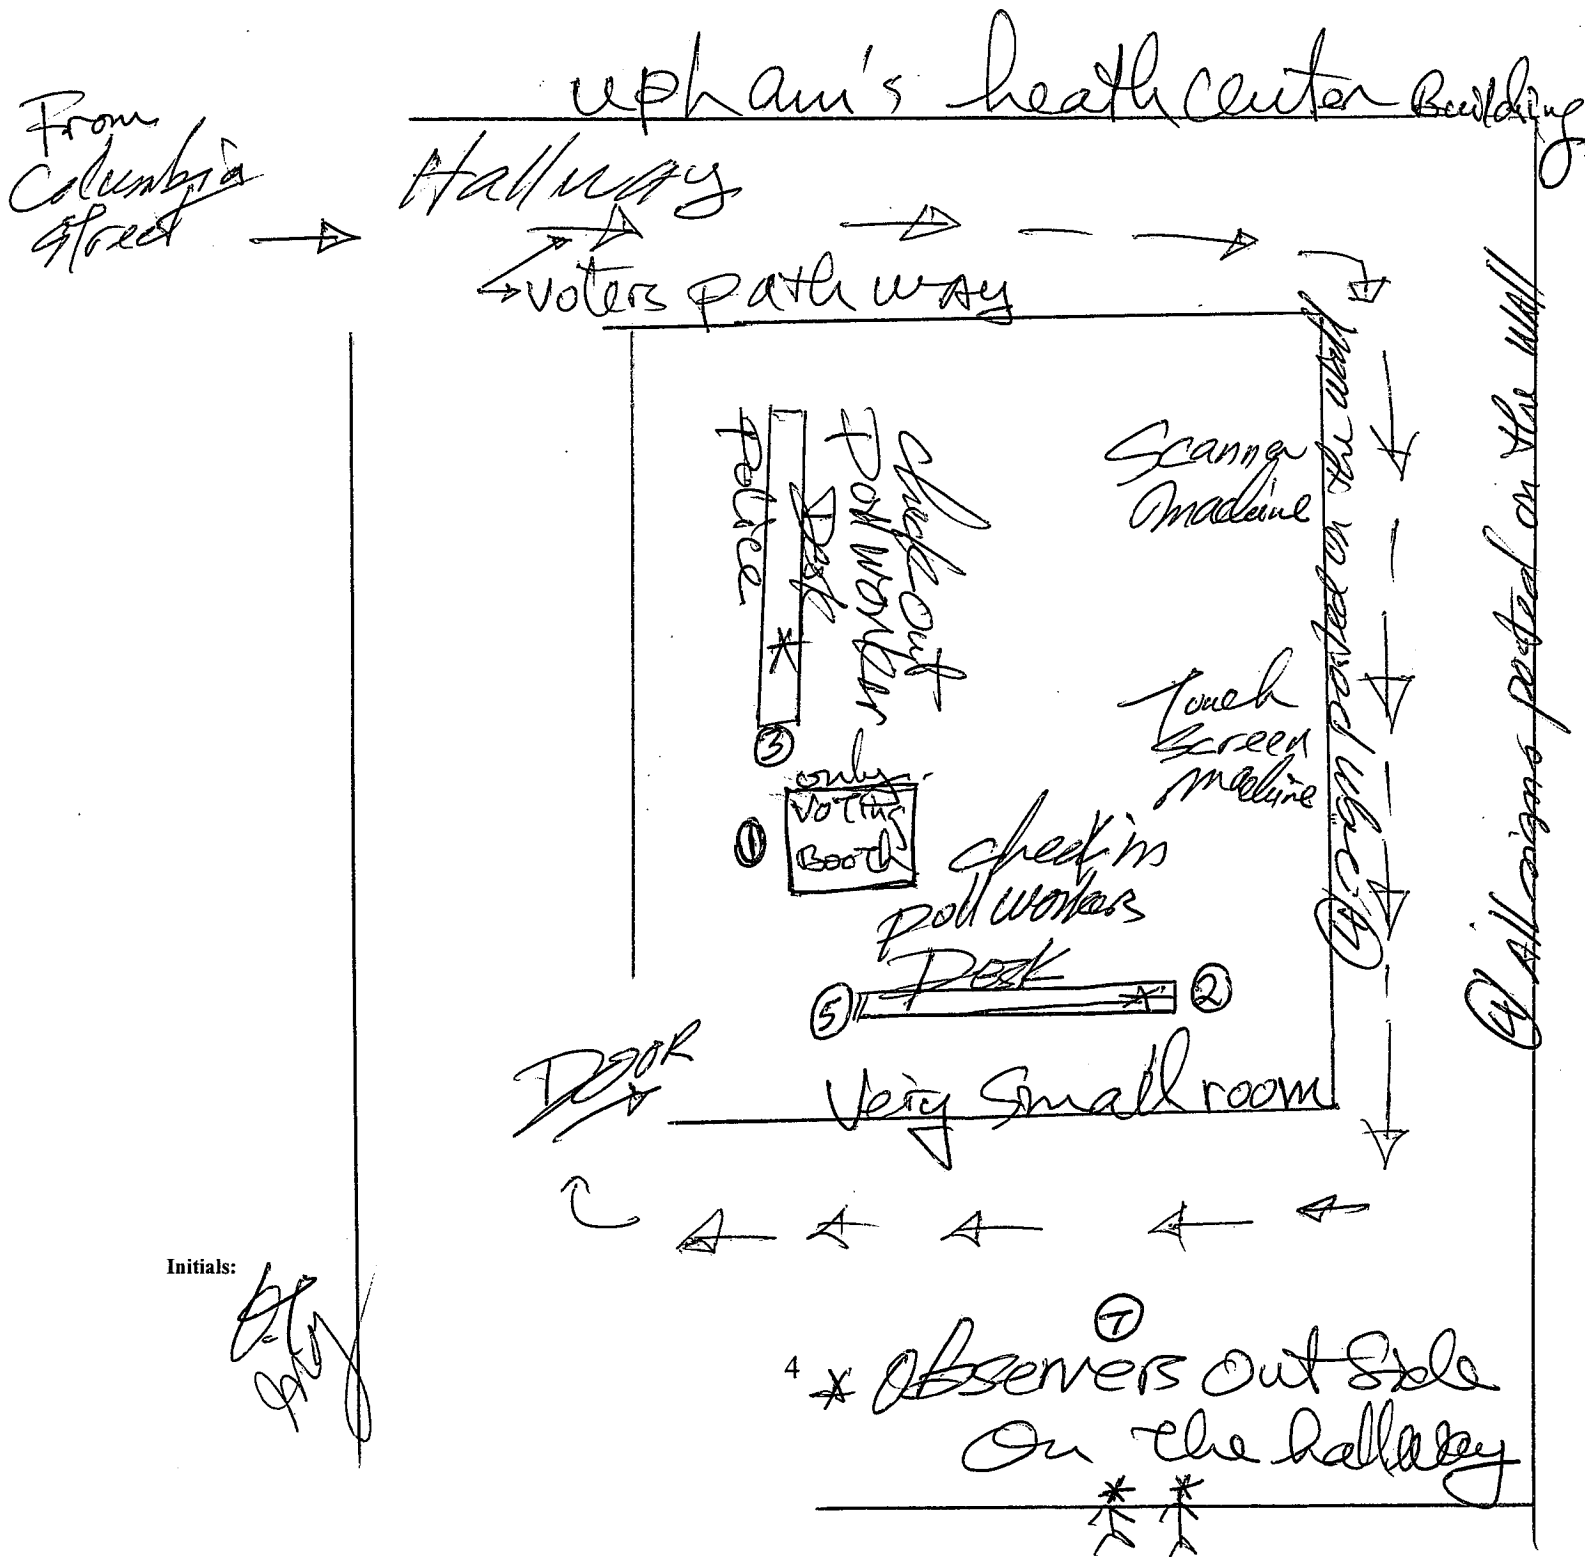 upham's heath center Building
From
Columbia
Street
Hallway
voters path way
Police
Desk
Poll worker
check Out
Scanner
machine
Touch
screen
machine
③
only
Voting
Booth
①
check ins
poll workers
Desk
⑤
②
④ sign posted on the wall
④ All signs posted on the wall
Door
Very Small room
Initials:
4
* Observers Out Side
On the hallway